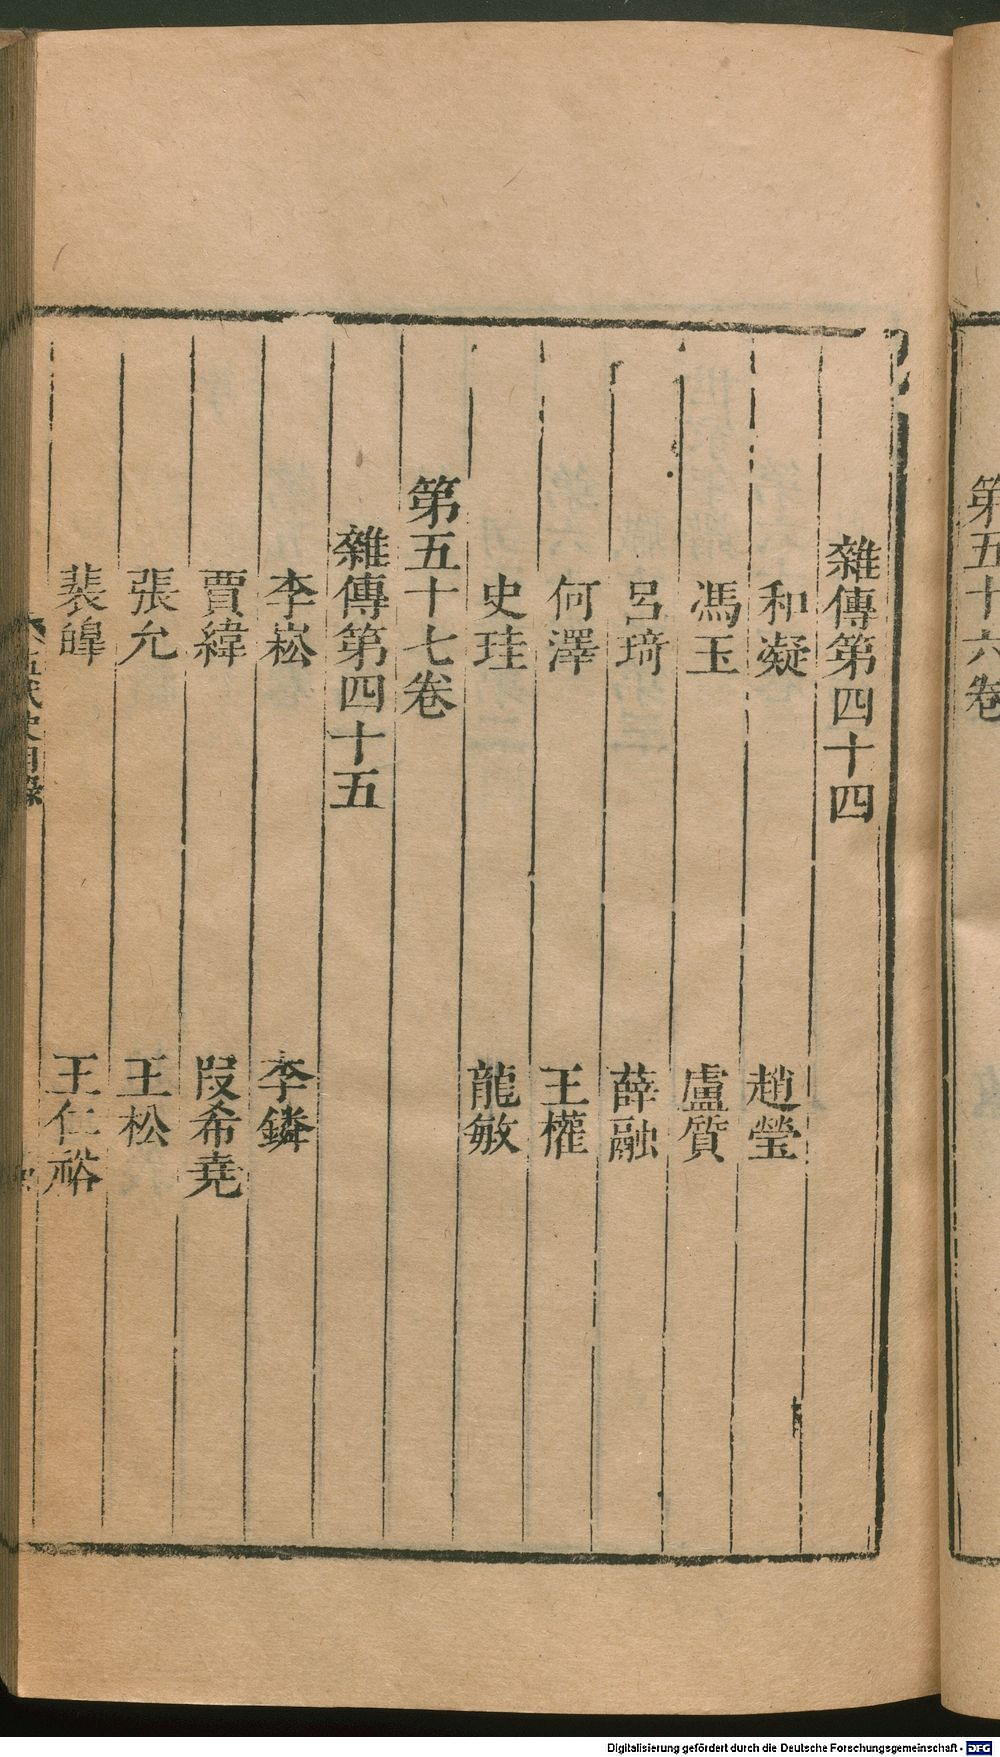 第五十六卷
雜傳第四十四
和凝 趙瑩
馮玉 盧質
呂琦 薛融
何澤 王權
史珪 龍敏
第五十七卷
雜傳第四十五
李崧 李鏻
賈緯 段希堯
張允 王松
裴皞 王仁裕
五代史目錄
Digitalisierung gefördert durch die Deutsche Forschungsgemeinschaft - DFG